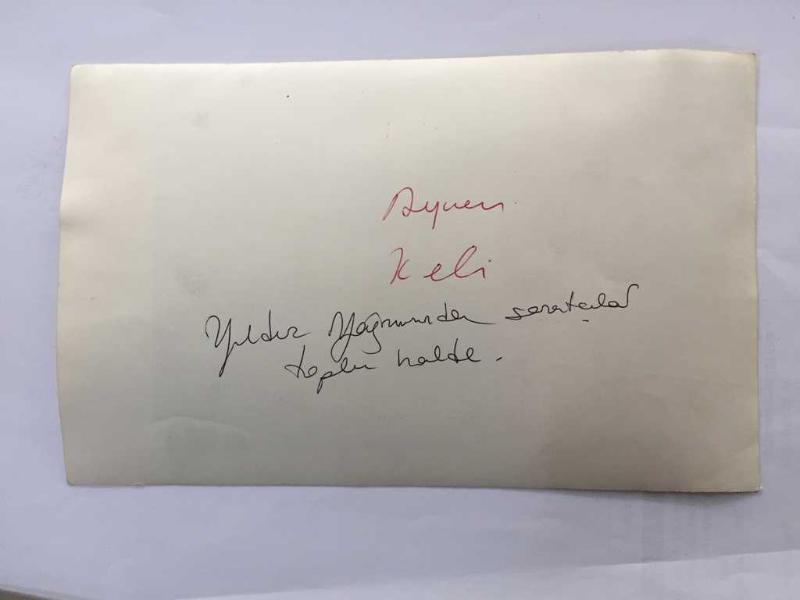 Aynen
Keli
Yıldız Yağmurundan sanatçılar
toplu halde.